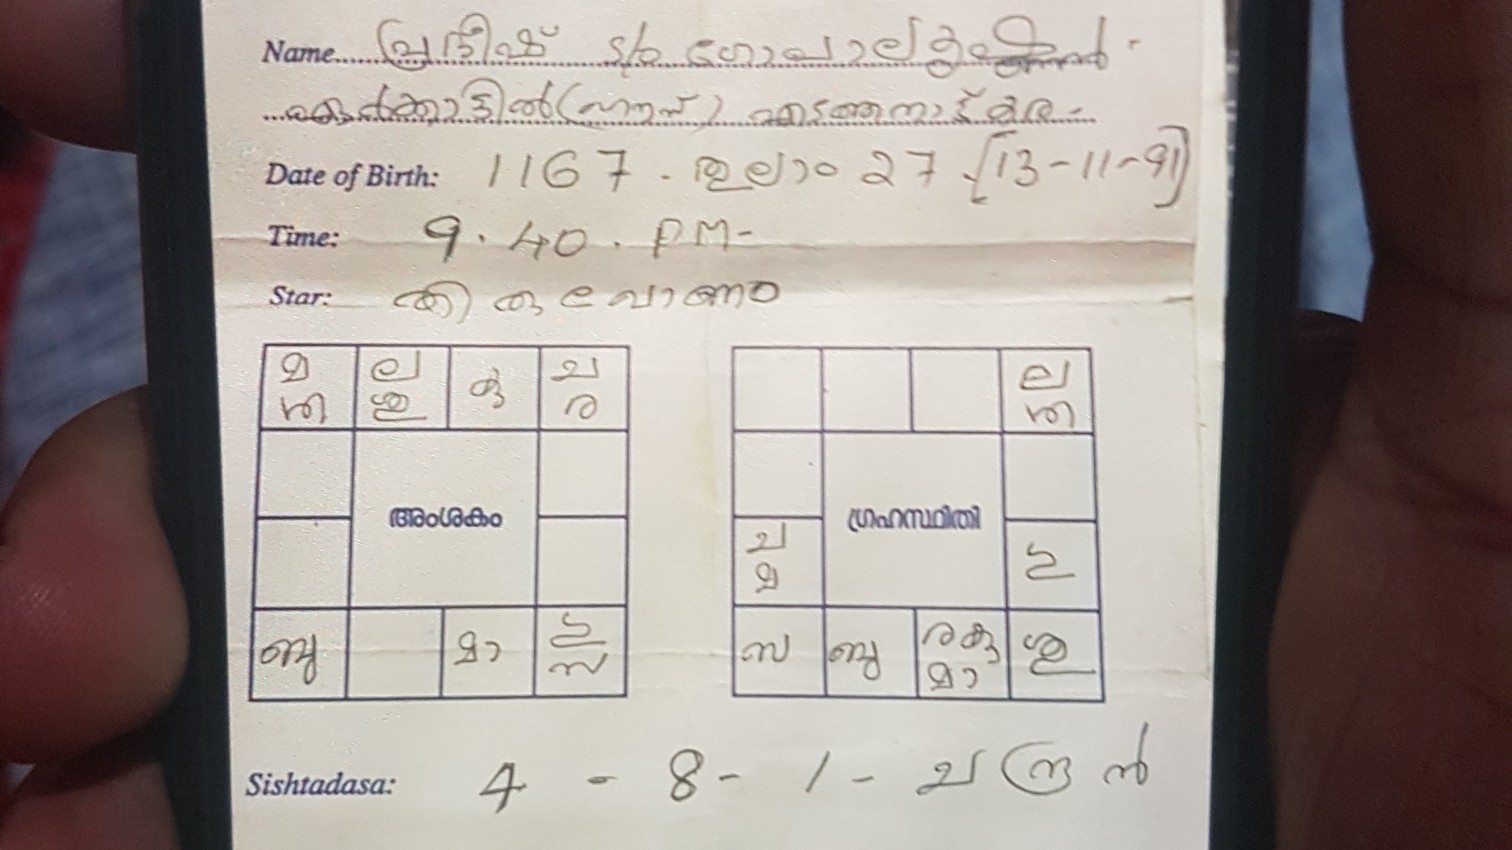 Name..... പ്രദീഷ് S/o ഗോപാലകൃഷ്ണൻ.
എടത്തനാട്ടുകര -
Date of Birth: 1167 . തുലാം 27 [13-11-91]
Time: 9.40. PM-
Star: തിരുവോണം
മ ല കു ച
ശി ശു ര
അംശകം
ബു മാ ഗു
സ
ല
ശി
ഗ്രഹസ്ഥിതി
ച
മ ഗു
സ ബു രകു ശു
മാ
Sishtadasa: 4 - 8 - 1 - ചന്ദ്രൻ